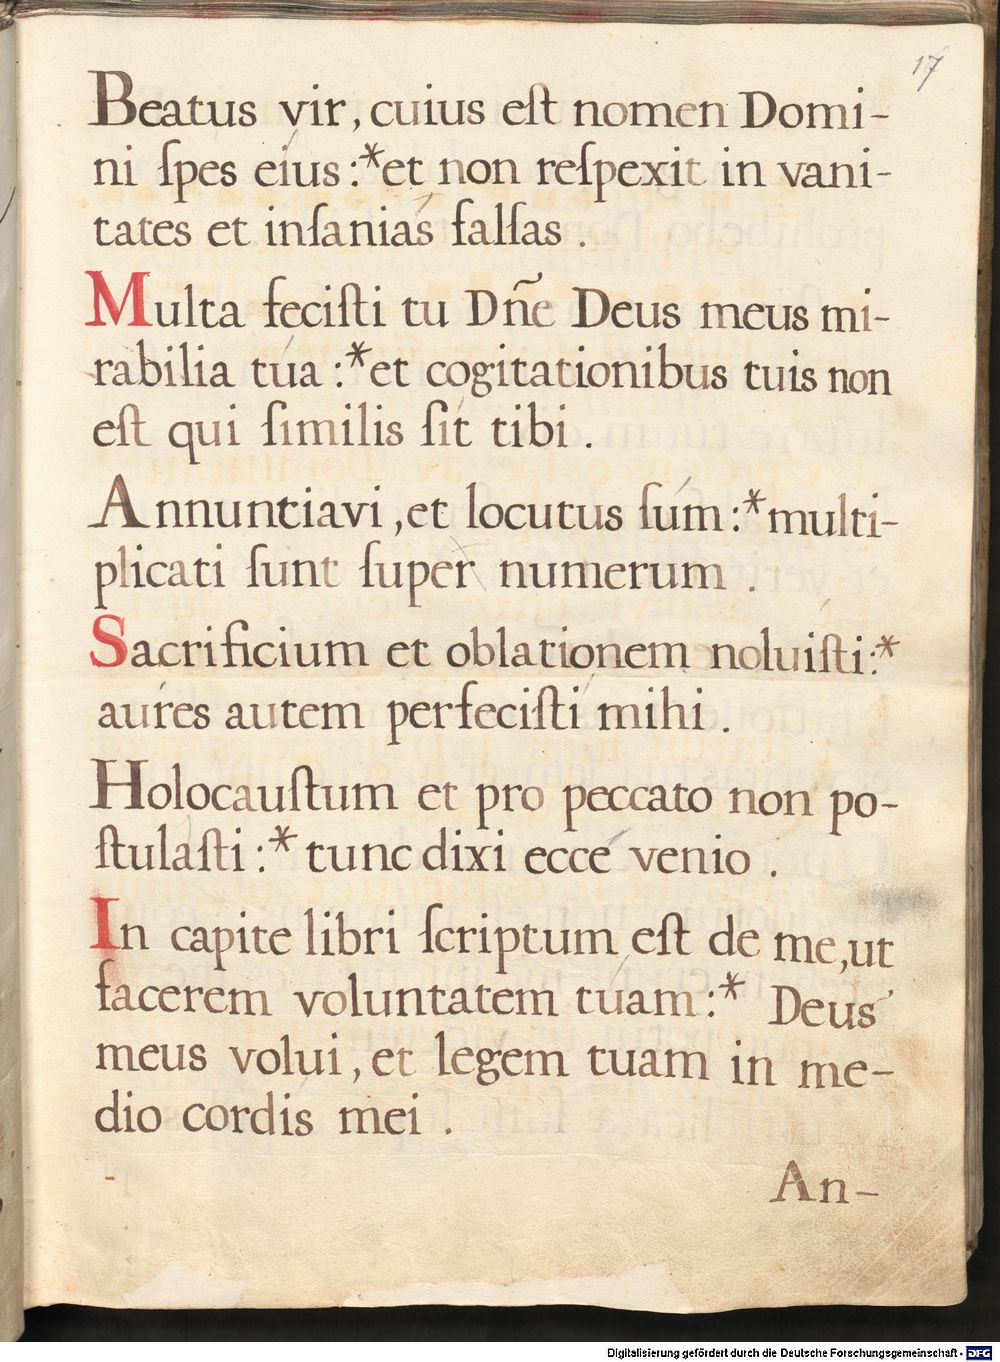 17
Beatus vir, cuius eſt nomen Domi-
ni ſpes eius :*et non reſpexit in vani-
tates et inſanias falſas .
Multa feciſti tu Dñe Deus meus mi-
rabilia tua :*et cogitationibus tuis non
eſt qui ſimilis ſit tibi .
Annuntiavi ,et locutus ſum :*multi-
plicati ſunt ſuper numerum .
Sacrificium et oblationem noluiſti :*
aures autem perfeciſti mihi .
Holocauſtum et pro peccato non po-
ſtulaſti :* tunc dixi ecce venio .
In capite libri ſcriptum eſt de me,ut
facerem voluntatem tuam :* Deus
meus volui , et legem tuam in me-
dio cordis mei .
An-
Digitalisierung gefördert durch die Deutsche Forschungsgemeinschaft - DFG